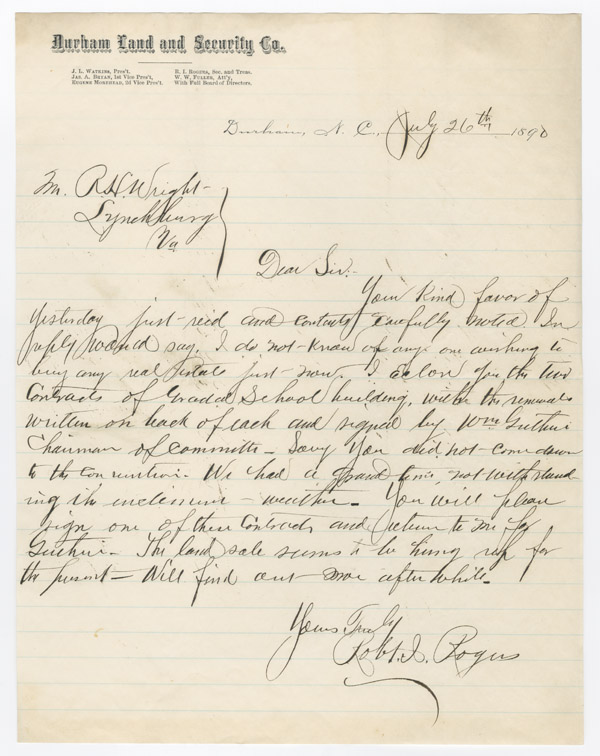 Durham Land and Security Co.
J. L. Watkins, Pres't,
Jas. A. Bryan, 1st Vice Pres't,
Eugene Morehead, 2d Vice Pres't.
R. I. Rogers, Sec. and Treas.
W. W. Fuller, Att'y,
With Full Board of Directors.
Durham, N. C., July 26th 1890
Mr. R. H. Wright
Lynchburg
Va
Dear Sir:
Your kind favor of
yesterday just recd and contents carefully noted. In
reply would say, I do not know of any one wishing to
buy any real estate just now. I enclose you the two
Contracts of Graded School building, with the renewals
written on back of each and signed by Wm Guthrie
Chairman of committee. Sorry you did not come down
to the convention. We had a grand time, notwithstand-
ing the inclement weather. You will please
sign one of these Contracts and return to me for
Guthrie. The land sale seems to be hung up for
the present — Will find out more after while.
Yours Truly
Robt. I. Rogers